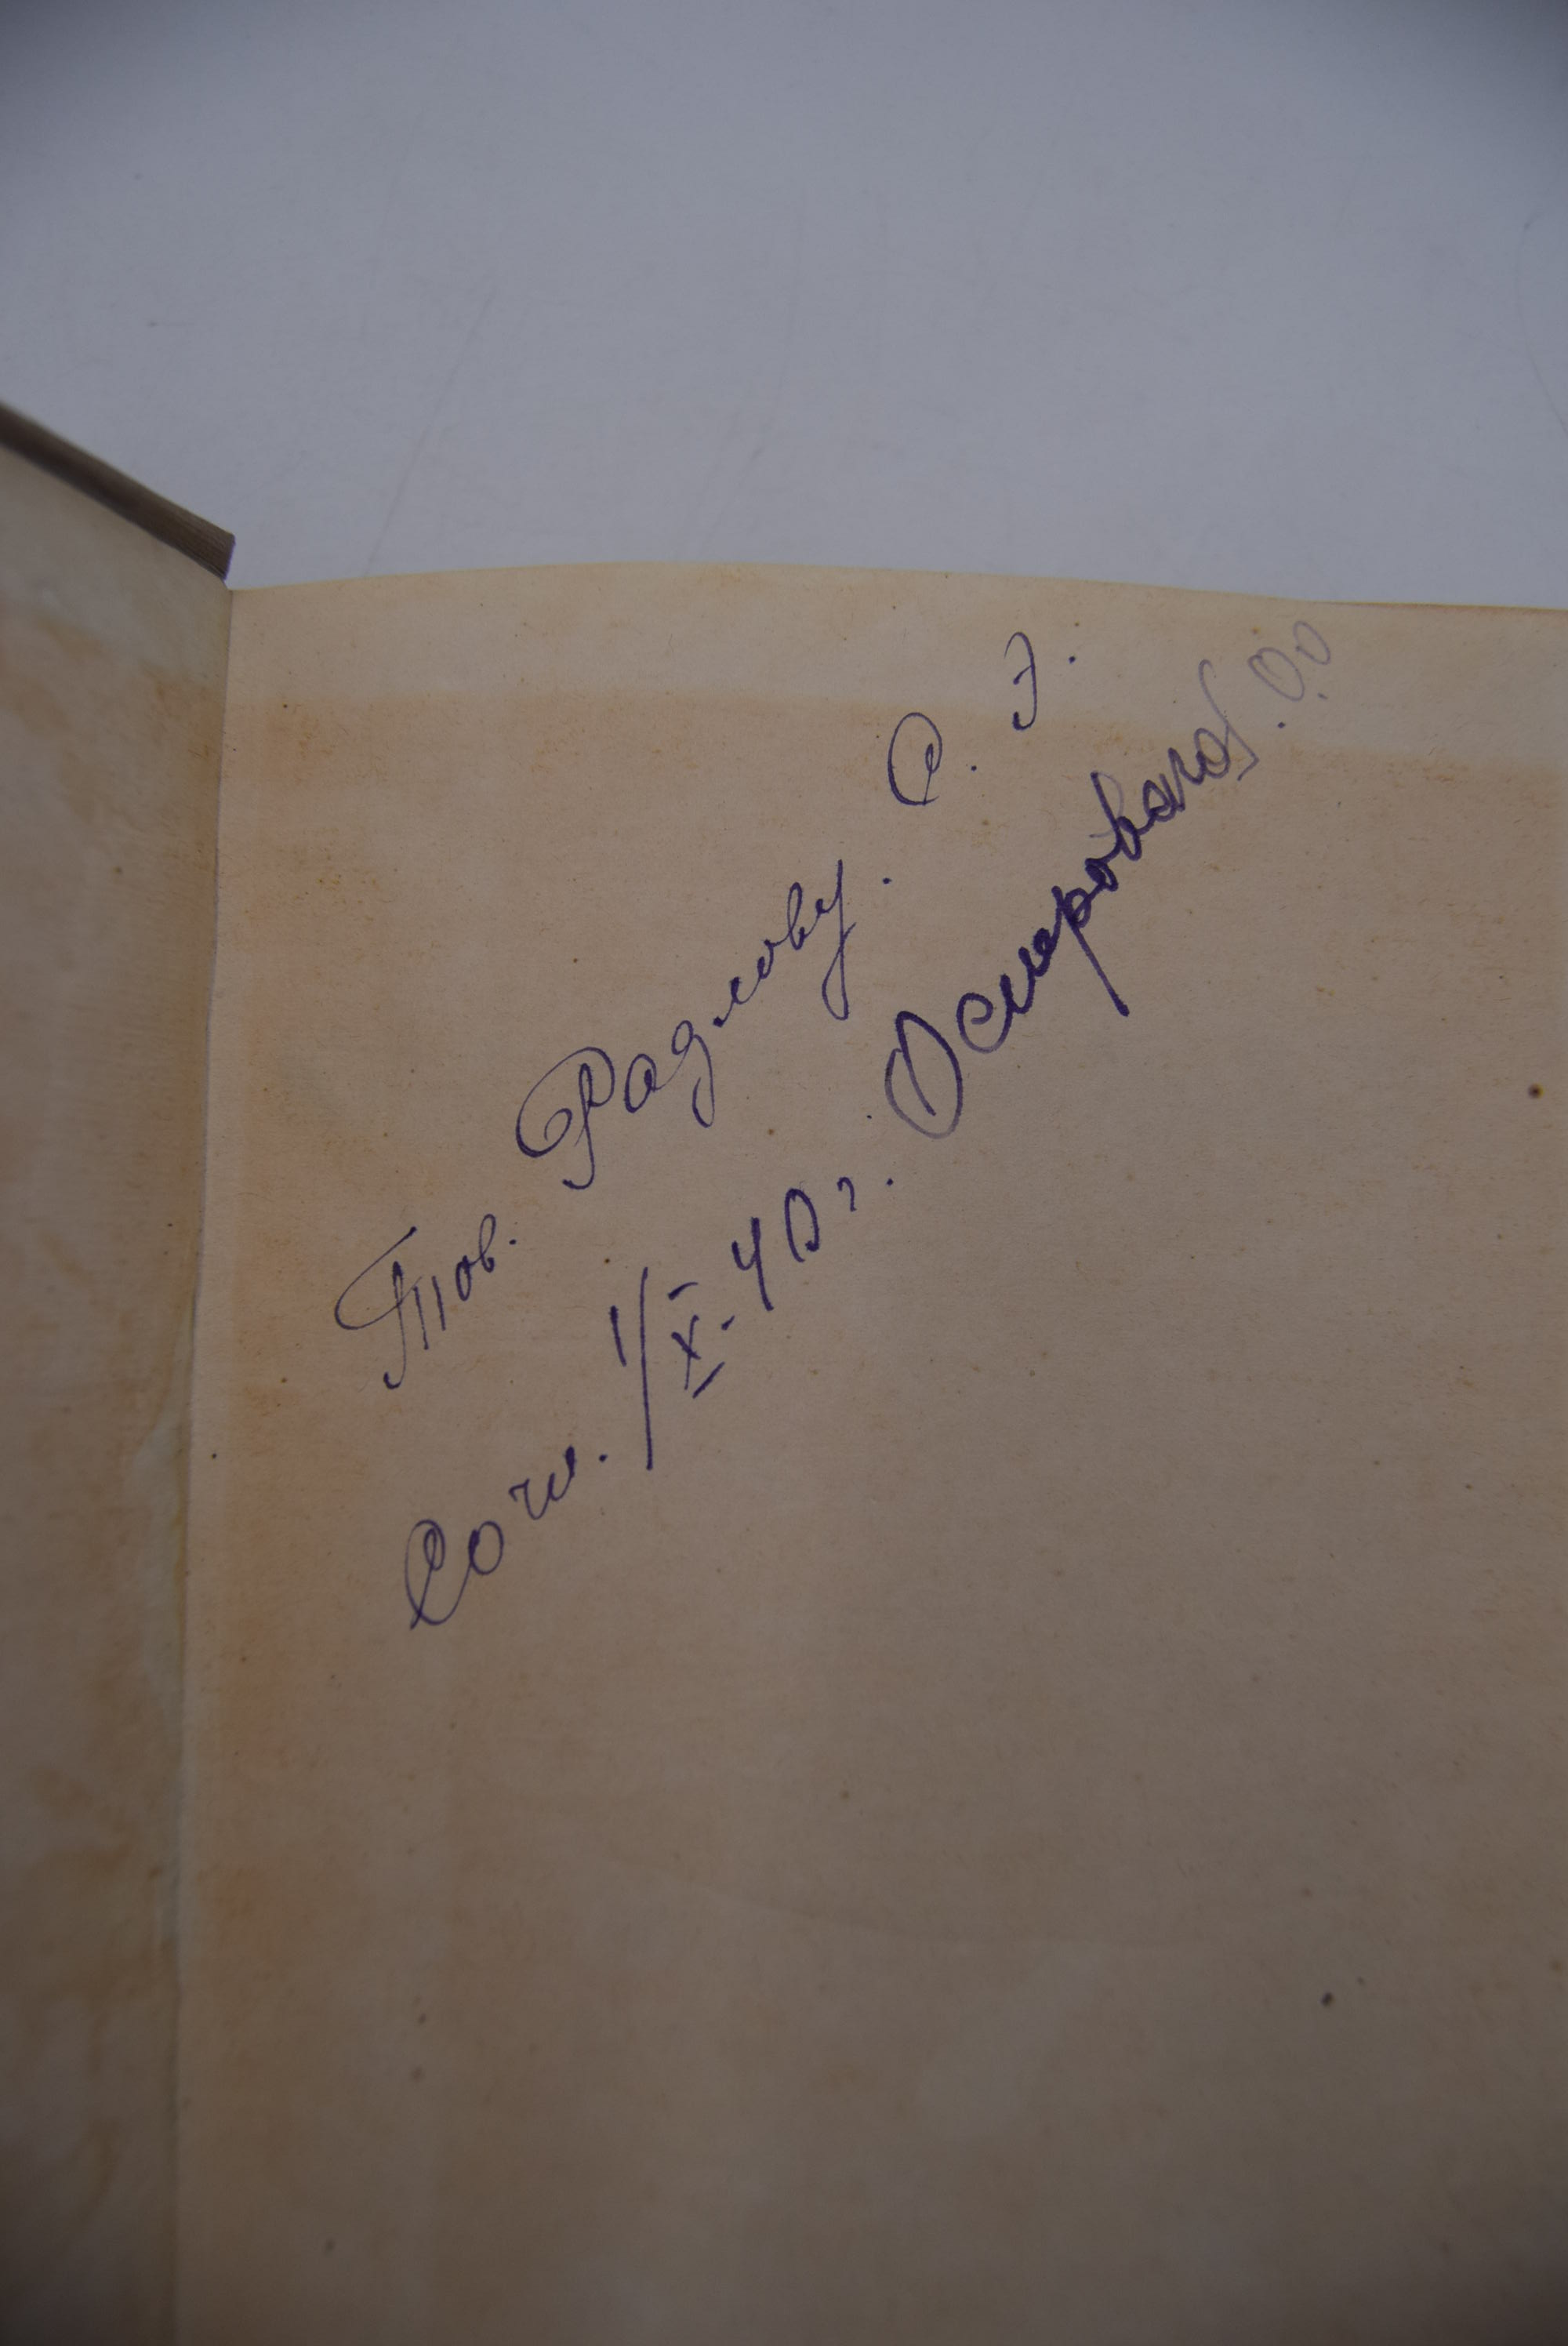 Тов. Радлову. С. Э.
Сочи. 1/X-40 г.